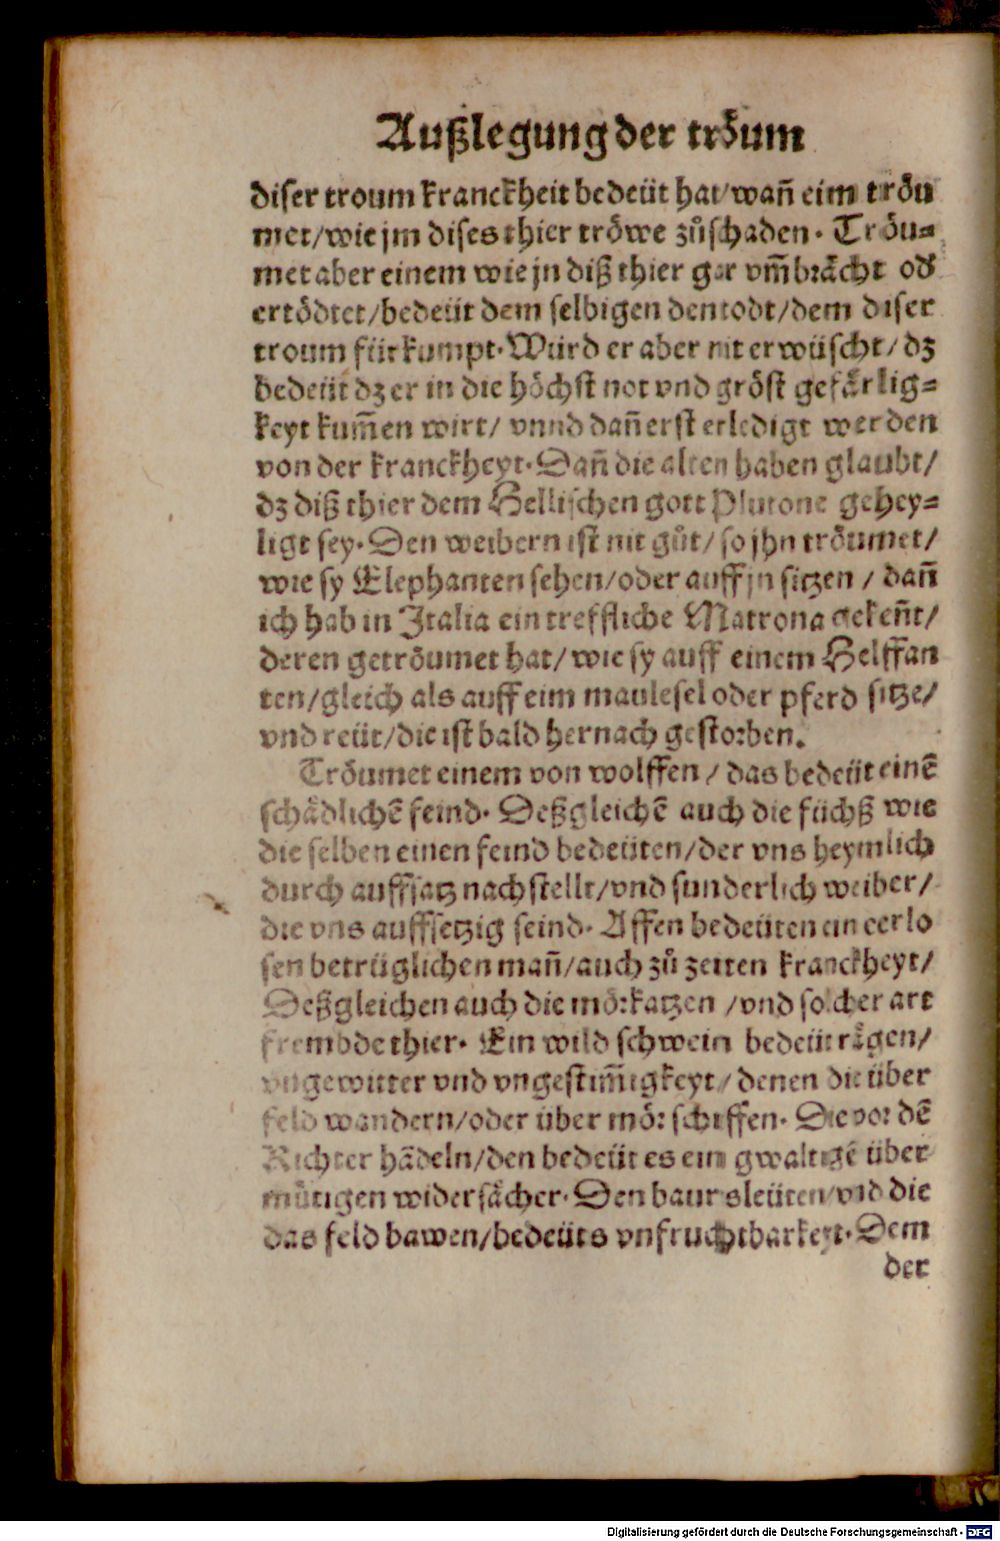 Außlegung der trǒum
diser troum kranckheit bedeüt hat/wañ eim trǒu
met/wie jm dises thier trǒwe zůschaden. Trǒu-
met aber einem wie jn diß thier gar vm̃brǎcht oď
ertǒdtet/bedeüt dem selbigen den todt/dem diser
troum fürkumpt. Würd er aber nit erwüscht/dz
bedeüt dz er in die hǒchst not vnd grǒst gefǎrlig-
keyt kum̃en wirt/ vnnd dañ erst erledigt werden
von der kranckheyt. Dañ die alten haben glaubt/
dz diß thier dem Hellischen gott Plutone gehey-
ligt sey. Den weibern ist nit gůt/so jhn trǒumet/
wie sy Elephanten sehen/oder auff jn sitzen / dañ
ich hab in Italia ein treffliche Matrona gekeñt/
deren getrǒumet hat/wie sy auff einem Helffan
ten/gleich als auff eim maulesel oder pferd sitze/
vnd reüt/die ist bald hernach gestorben.
Trǒumet einem von wolffen / das bedeüt einẽ
schǎdlichẽ feind. Deßgleichẽ auch die füchß wie
die selben einen feind bedeüten/der vns heymlich
durch auffsatz nachstellt/vnd sunderlich weiber/
die vns auffsetzig seind. Affen bedeüten ein eerlo
sen betrüglichen mañ/auch zů zeiten kranckheyt/
Deßgleichen auch die mǒrkatzen /vnd solcher art
frembde thier. Ein wild schwein bedeüt rǎgen/
vngewitter vnd vngestim̃igkeyt/denen die über
feld wandern/oder über mǒr schiffen. Die vor dẽ
Richter hãdeln/den bedeüt es ein gwaltigẽ über
mütigen widersǎcher. Den baursleüten/vnd die
das feld bawen/bedeüts vnfruchtbarkeyt. Dem
der
Digitalisierung gefördert durch die Deutsche Forschungsgemeinschaft - DFG